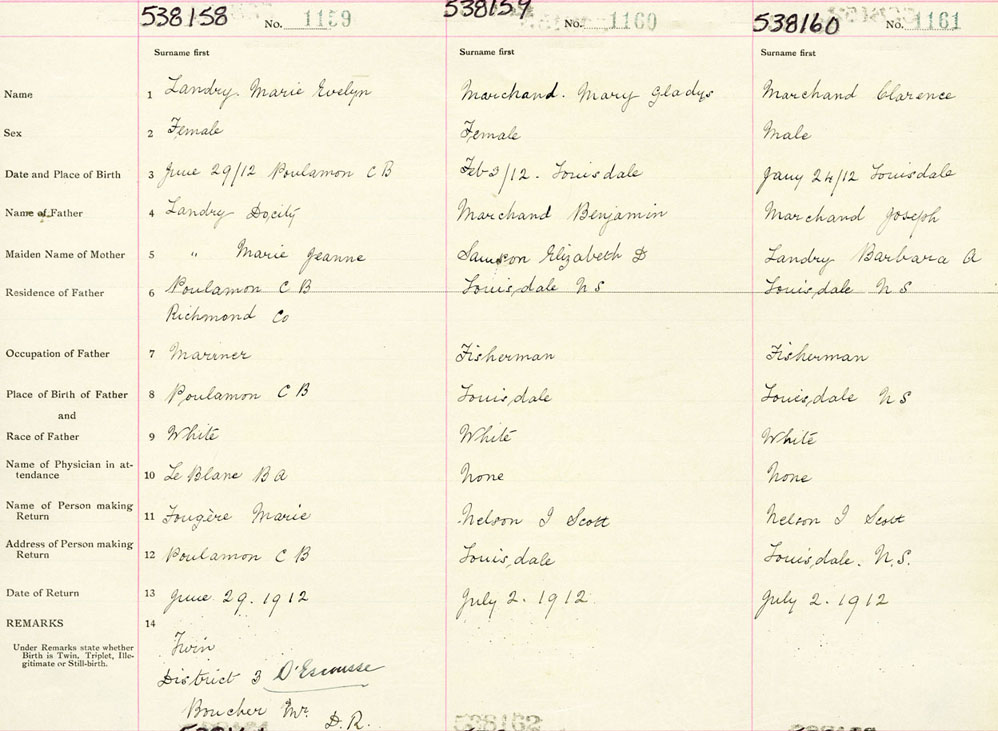 538158 No. 1159 538159 No. 1160 538160 No. 1161
Surname first Surname first Surname first
Name 1 Landry Marie Evelyn Marchand. Mary Gladys Marchand Clarence
Sex 2 Female Female Male
Date and Place of Birth 3 June 29/12 Poulamon C B Feb 3/12. Louisdale Jany 24/12 Louisdale
Name of Father 4 Landry Docity Marchand Benjamin Marchand Joseph
Maiden Name of Mother 5 " Marie Jeanne Samson Elizabeth D Landry Barbara A
Residence of Father 6 Poulamon C B Louisdale N S Louisdale N S
Richmond Co
Occupation of Father 7 Mariner Fisherman Fisherman
Place of Birth of Father 8 Poulamon C B Louisdale Louisdale N S
and
Race of Father 9 White White White
Name of Physician in at-
tendance 10 Le Blanc B A None None
Name of Person making
Return 11 Fougère Marie Nelson I Scott Nelson I Scott
Address of Person making
Return 12 Poulamon C B Louisdale Louisdale. N.S.
Date of Return 13 June 29. 1912 July 2. 1912 July 2. 1912
REMARKS 14
Under Remarks state whether
Birth is Twin, Triplet, Ille-
gitimate or Still-birth.
Twin
District 3 D'Escousse
Boucher Mr. D.R.
538162